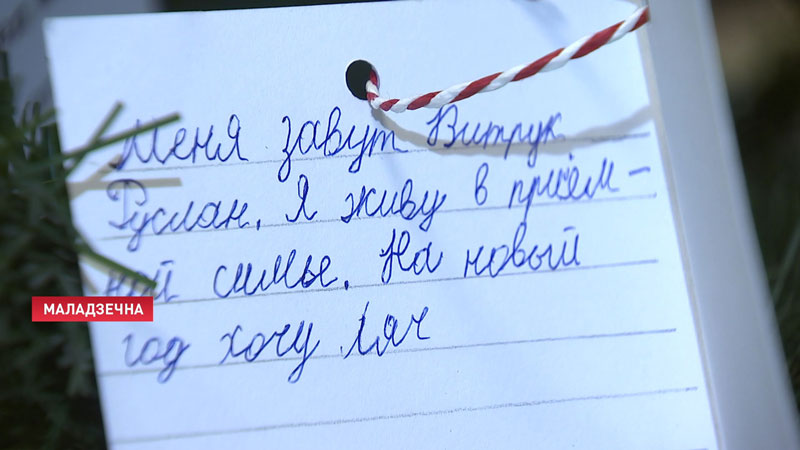 Меня завут Витрук
Руслан. Я живу в приём-
ной симье. На новый
год хочу мяч
МАЛАДЗЕЧНА